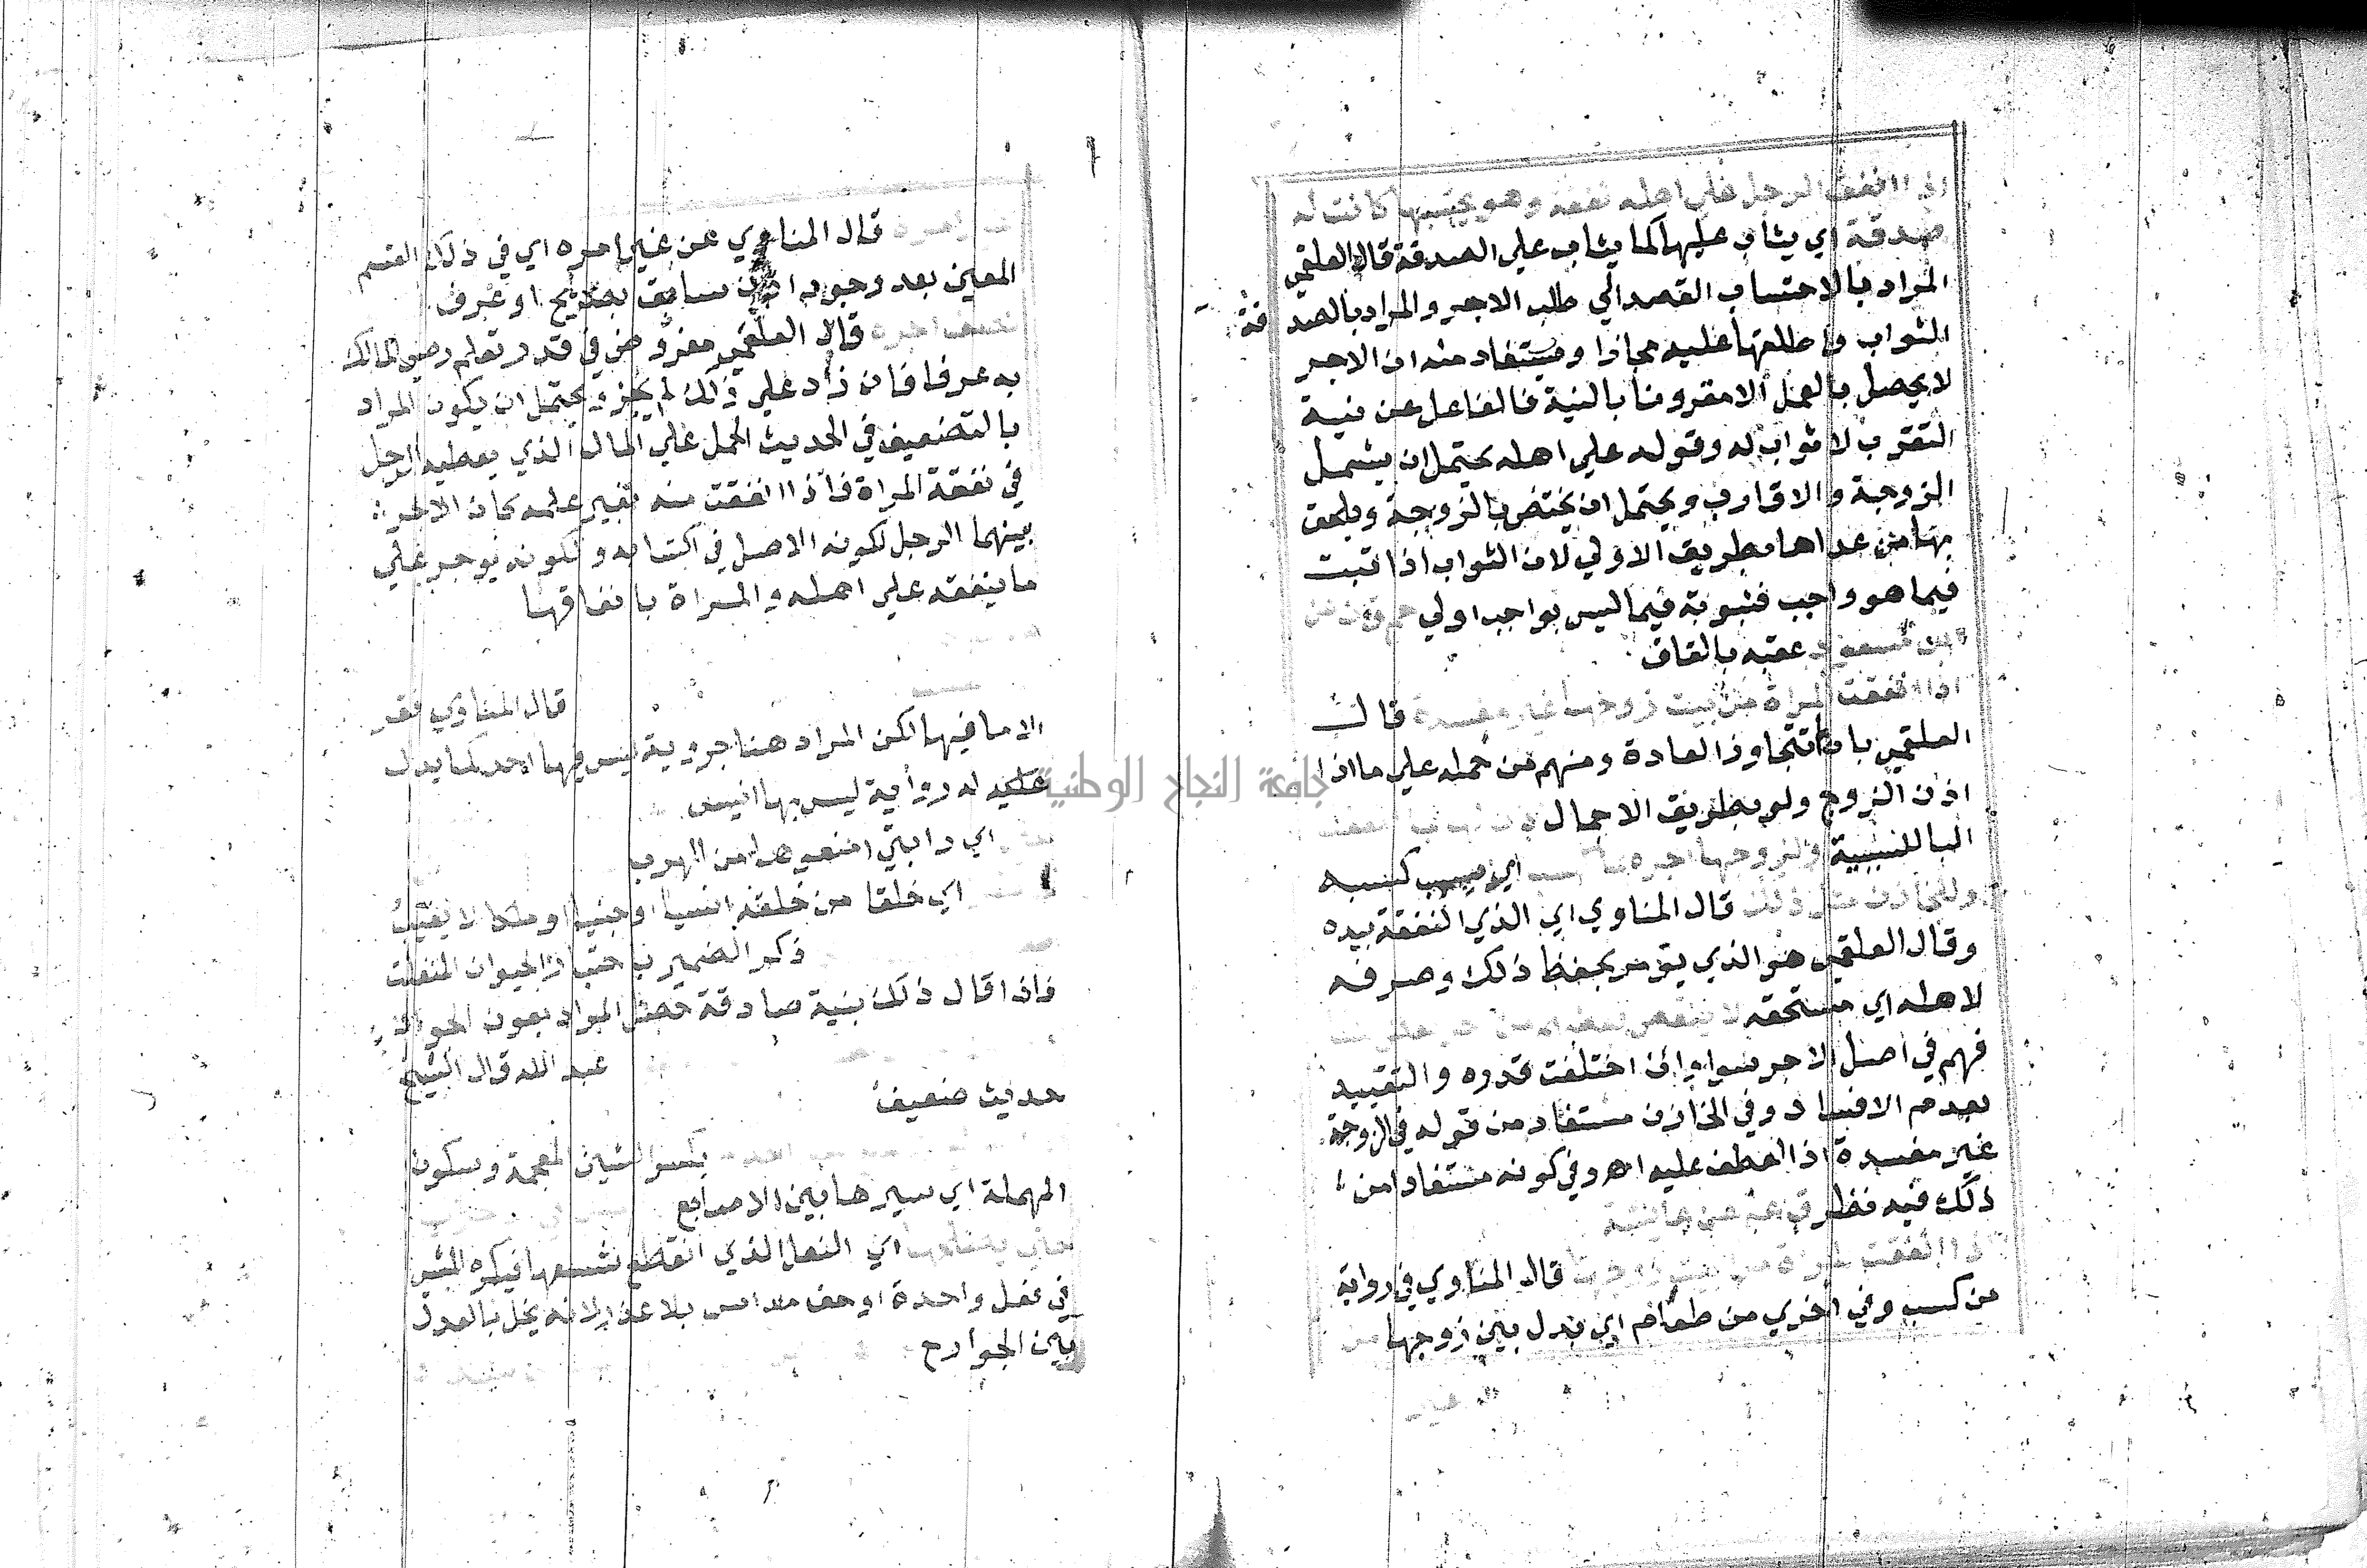 اذا انفق الرجل علي اهله نفقة وهو يحتسبها كانت له
صدقة اي يثاب عليها كما يثاب علي الصدقة قال العلقمي
المراد بالاحتساب القصد الي طلب الاجر والمراد بالصدقة
الثواب واطلاقها عليه مجازا ويستفاد منه ان الاجر
لا يحصل بالعمل الا مقرونا بالنية فالغافل عن نية
التقرب لا ثواب له وقوله علي اهله يحتمل ان يشمل
الزوجة والاقارب ويحتمل ان يختص بالزوجة ويلحق
بها من عداها بطريق الاولي لان الثواب اذا ثبت
فيما هو واجب فثبوته فيما ليس بواجب اولي حم ق ن عن
ابن مسعود عقبه بالقاف
اذا انفقت المراة من بيت زوجها غير مفسدة قال
العلقمي بان لا تتجاوز العادة ومنهم من حمله علي ما اذا
اذن الزوج ولو بطريق الاجمال
البا للسببية ولزوجها اجره بما اي بسبب كسبه
وللخازن مثل ذلك قال المناوي اي الذي النفقة بيده
وقال العلقمي هو الذي يؤمر بحفظ ذلك وصرفه
لاهله اي مستحقه لا ينقص بعضهم من
فهم في اصل الاجر سوا وان اختلفت قدره والتقييد
بعدم الافساد وفي الخازن مستفاد من قوله في الزوجة
غير مفسدة اذا لعطف عليه اهـ وفي كونه مستفادا من
ذلك فيه نظر ق عن عايشة
اذا انفقت المراة من بيت زوجها قال المناوي في رواية
من كسب وفي اخري من طعام اي بدل بيت زوجها من
غير امره قال المناوي عن غير امره اي في ذلك القسم
المعين بعد وجود اذن سابق بصريح او عرف
نصف اجره قال العلقمي مفروض في قدر تعلم رضي المالك
به عرفا فان زاد علي ذلك لم يجز ويحتمل ان يكون المراد
بالتضعيف في الحديث الحمل علي المال الذي يعطيه الرجل
في نفقة المراة فاذا انفقت منه بغير علمه كان الاجر
بينهما الرجل لكونه الاصل في اكتسابه ولكونه يوجر علي
ما ينفقه علي اهله والمراة بانفاقها
قال المناوي فقر
الا ما فيها لكن المراد هنا جروية ليس فيها احد كما يدل
عليه له رواية ليس بها انيس
اي دابتي امنعوها من الهرب
اي خلقا من خلقه انسيا او جنيا او ملكا لا يغيب
ذكر الضمير باعتبار الحيوان المنفلت
فاذا قال ذلك بنية صادقة حصل المراد بعون الجواد
عبد الله قال الشيخ
حديث ضعيف
بكسر الشين المعجمة وسكون
المهملة اي سيرها بين الاصابع
حتي يصلحها اي النعل الذي انقطع شسعها فيكره المشي
في نعل واحدة او خف مداس بلا عذر لانه يخل بالعدل
بين الجوارح
جامعة النجاح الوطنية